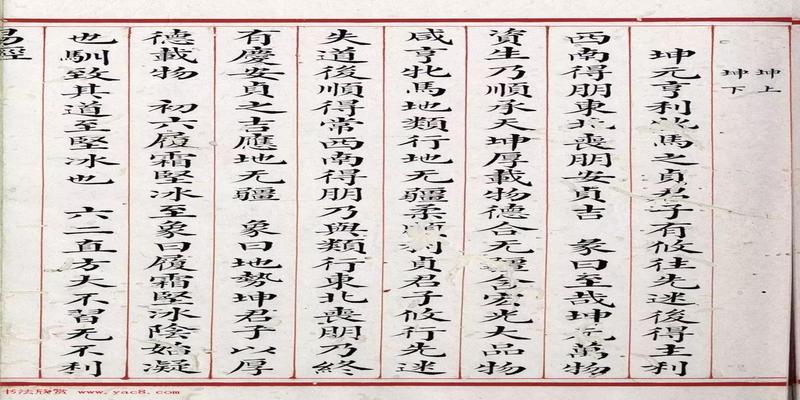 坤上
坤下
坤元亨利牝馬之貞君子有攸往先迷後得主利
西南得朋東北喪朋安貞吉 彖曰至哉坤元萬物
資生乃順承天坤厚載物德合无疆含宏光大品物
咸亨牝馬地類行地无疆柔順利貞君子攸行先迷
失道後順得常西南得朋乃與類行東北喪朋乃終
有慶安貞之吉應地无疆 象曰地勢坤君子以厚
德載物 初六履霜堅冰至象曰履霜堅冰陰始凝
也馴致其道至堅冰也 六二直方大不習无不利
易經
书法欣赏 www.yac8.com